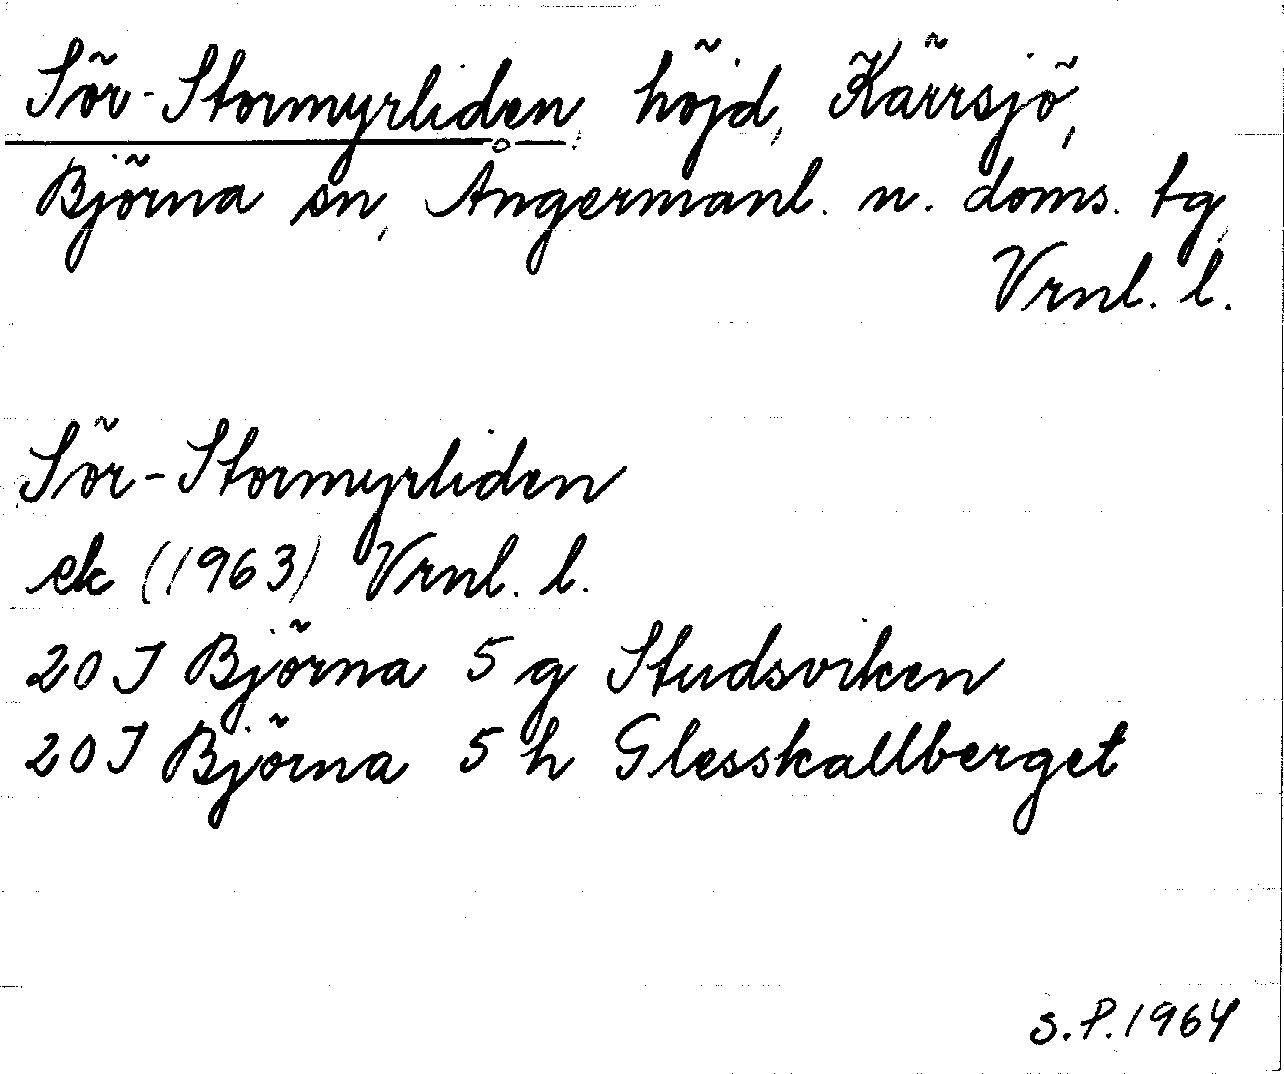 Sör-Stormyrliden, höjd, Kärrsjö,
Björna sn, Ångermanl. n. doms. tg,
Vrnl. l.
Sör-Stormyrliden
ek (1963) Vrnl. l.
20 J Björna 5 g Studsviken
20 J Björna 5 h Glesskallberget
S.P. 1964